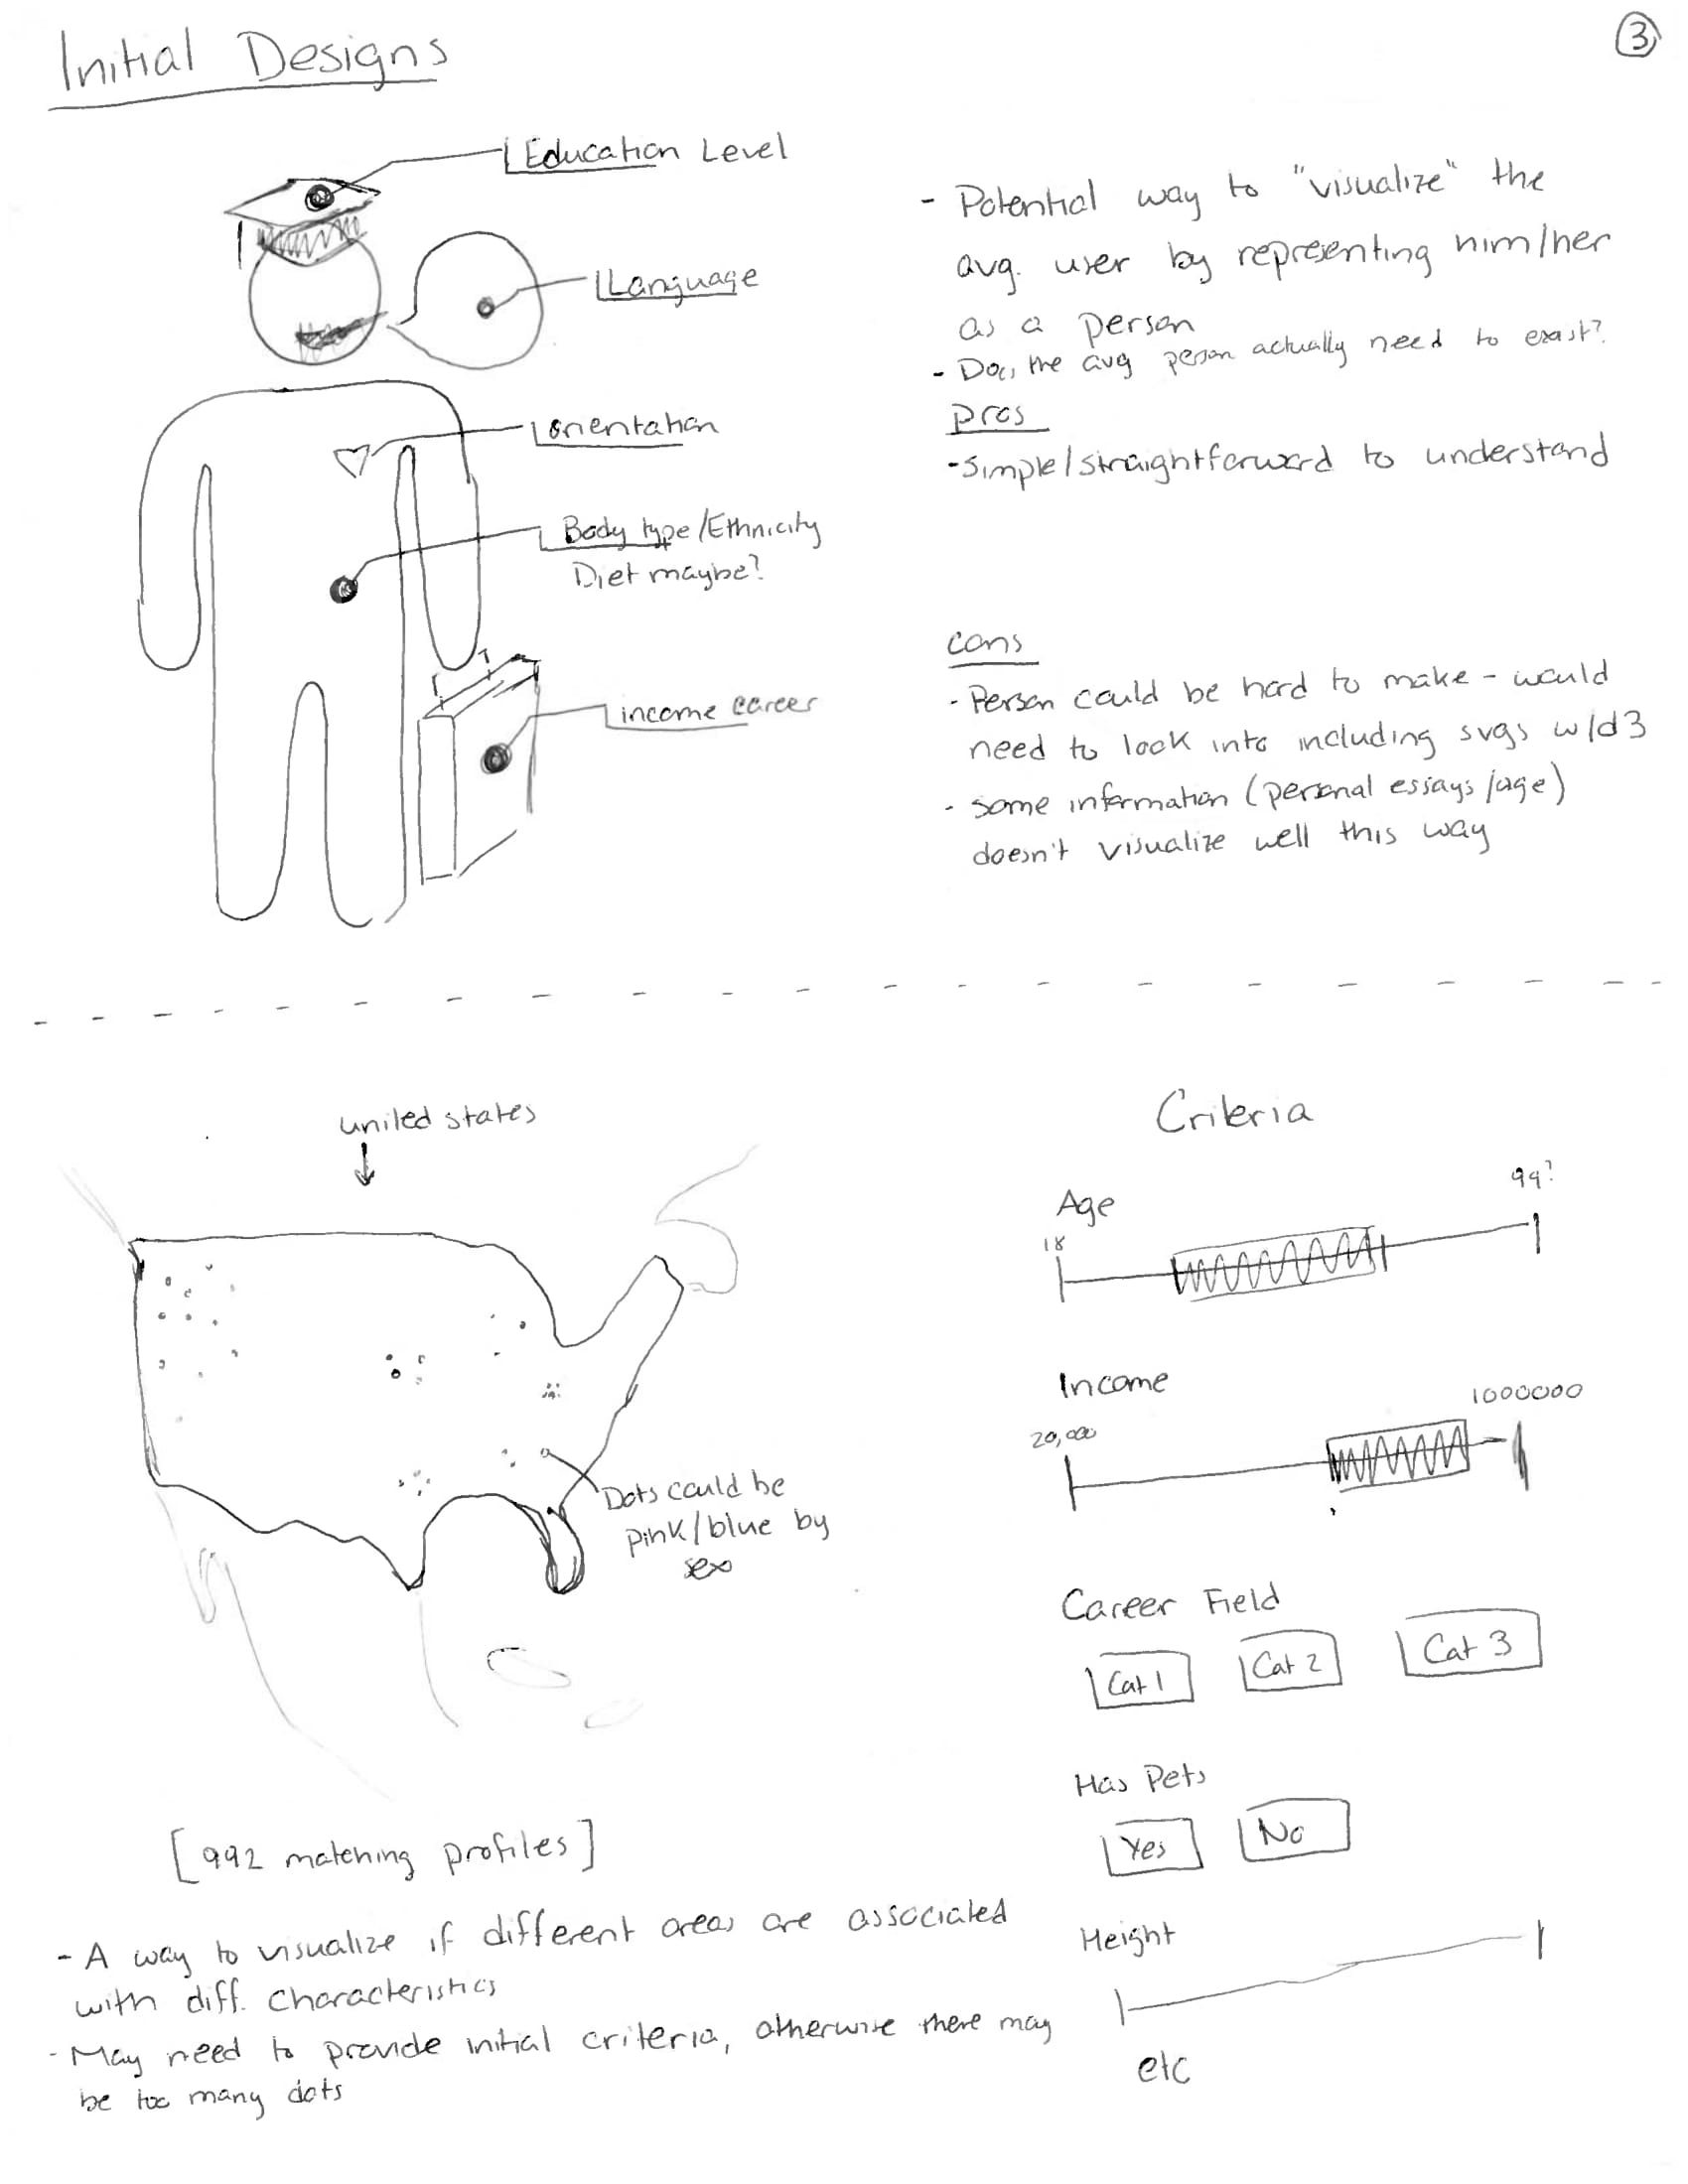 Initial Designs
3
Education Level
Language
orientation
Body type/Ethnicity
Diet maybe?
income career
- Potential way to "visualize" the
avg. user by representing him/her
as a person
- Does the avg person actually need to exist?
pros
- Simple/straightforward to understand
cons
- Person could be hard to make - would
need to look into including svgs w/d3
- some information (personal essays/age)
doesn't visualize well this way
united states
Dots could be
pink/blue by
sex
[992 matching profiles]
- A way to visualize if different areas are associated
with diff. characteristics
- May need to provide initial criteria, otherwise there may
be too many dots
Criteria
Age
18
99?
Income
20,000
1000000
Career Field
Cat 1
Cat 2
Cat 3
Has Pets
Yes
No
Height
etc